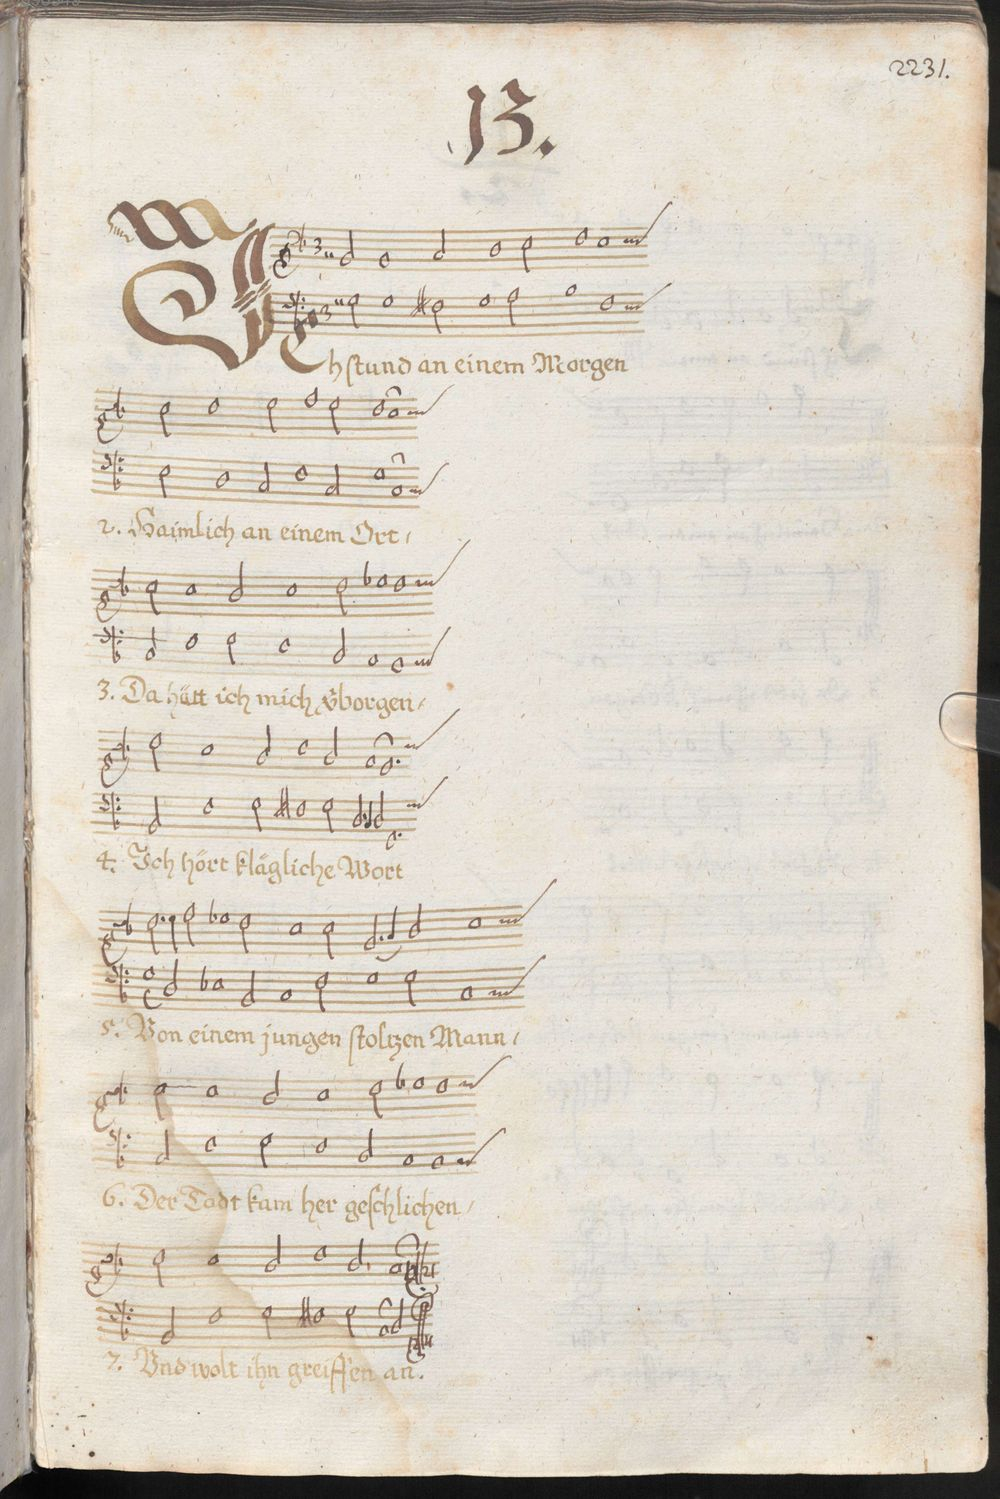 2231.
13.
Ich stund an einem Morgen
2. Haimlich an einem Ort,
3. Da hätt ich mich v̈borgen,
4. Ich hört klägliche Wort
5. Von einem jungen stoltzen Mann,
6. Der Todt kam her geschlichen,
7. Vnd wolt ihn greiffen an.